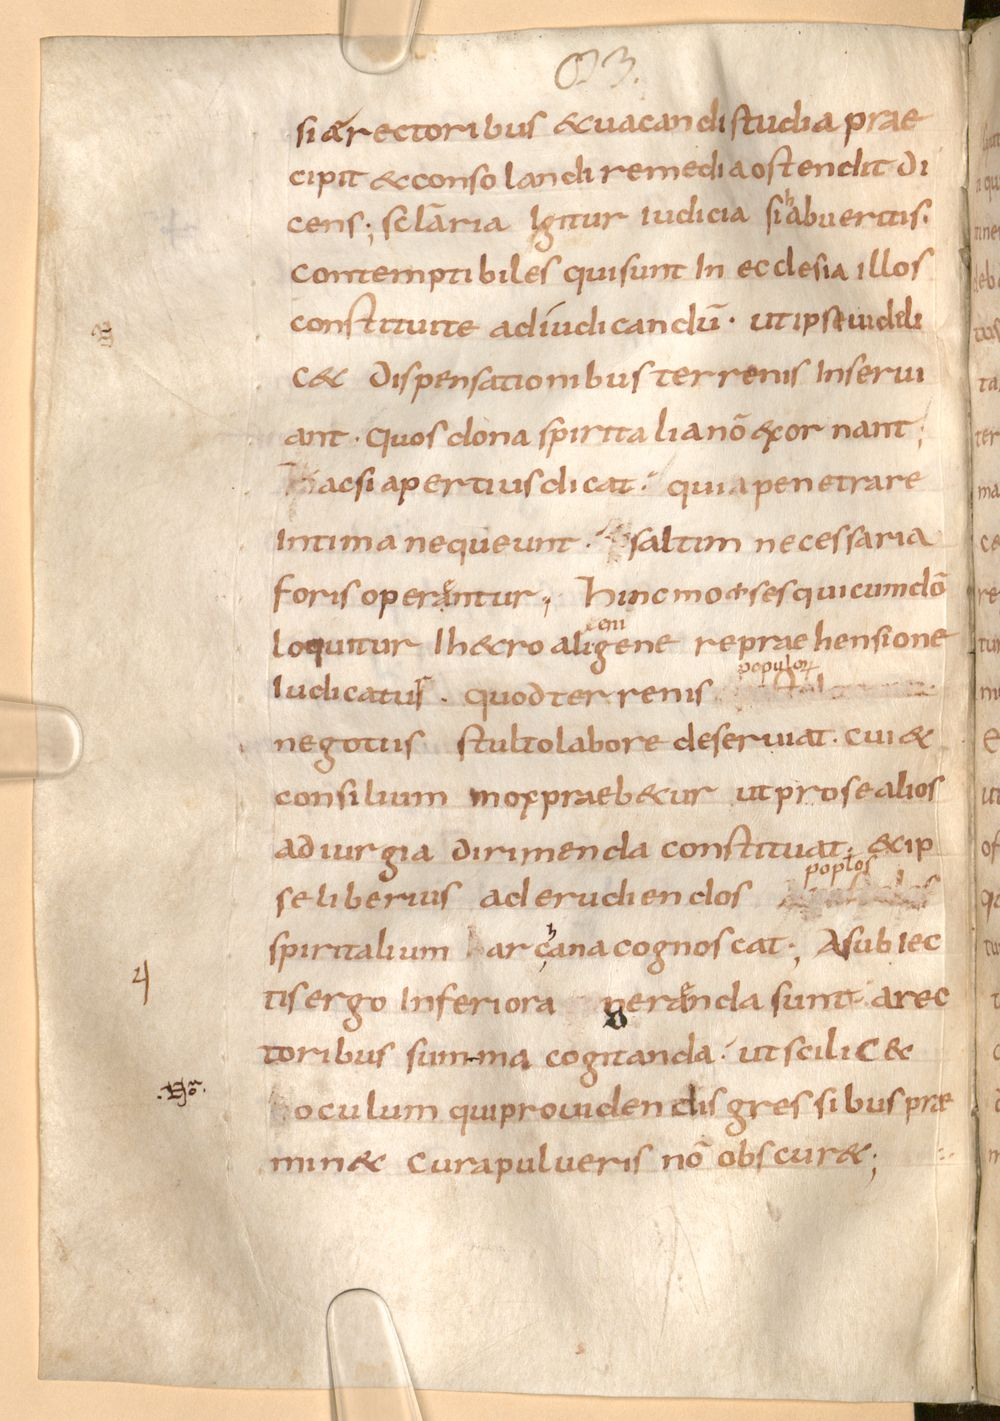 siaerectoribus & vacandi studia prae
cipit & consolandi remedia ostendit di
cens; scłaria Igitur iudicia si habueritis.
contemptibiles qui sunt In ecclesia illos
constituite ad iudicandū. ut ipsi videli
c& dispensationibus terrenis Inservi
ant. quos dona spiritalia nō exornant;
hac si apertius dicat. quia penetrare
Intima nequeunt. saltim necessaria
foris operantur; Hinc moeses qui cum dō
loquitur Ih&cro aligene repraehensione
eni
Iudicatus. quod terrenis
populoꝝ
negotiis stulto labore deserviat. cui &
consilium mox praeb&ur ut pro se alios
ad iurgia dirimenda constituat. & ip
se liberius ad erudiendos
poplos
spiritalium archana cognoscat; A subiec
tis ergo Inferiora gerenda sunt a rec
toribus summa cogitanda. ut scilic&
oculum qui providendis gressibus prae
min& cura pulveris nō obscur&;
4